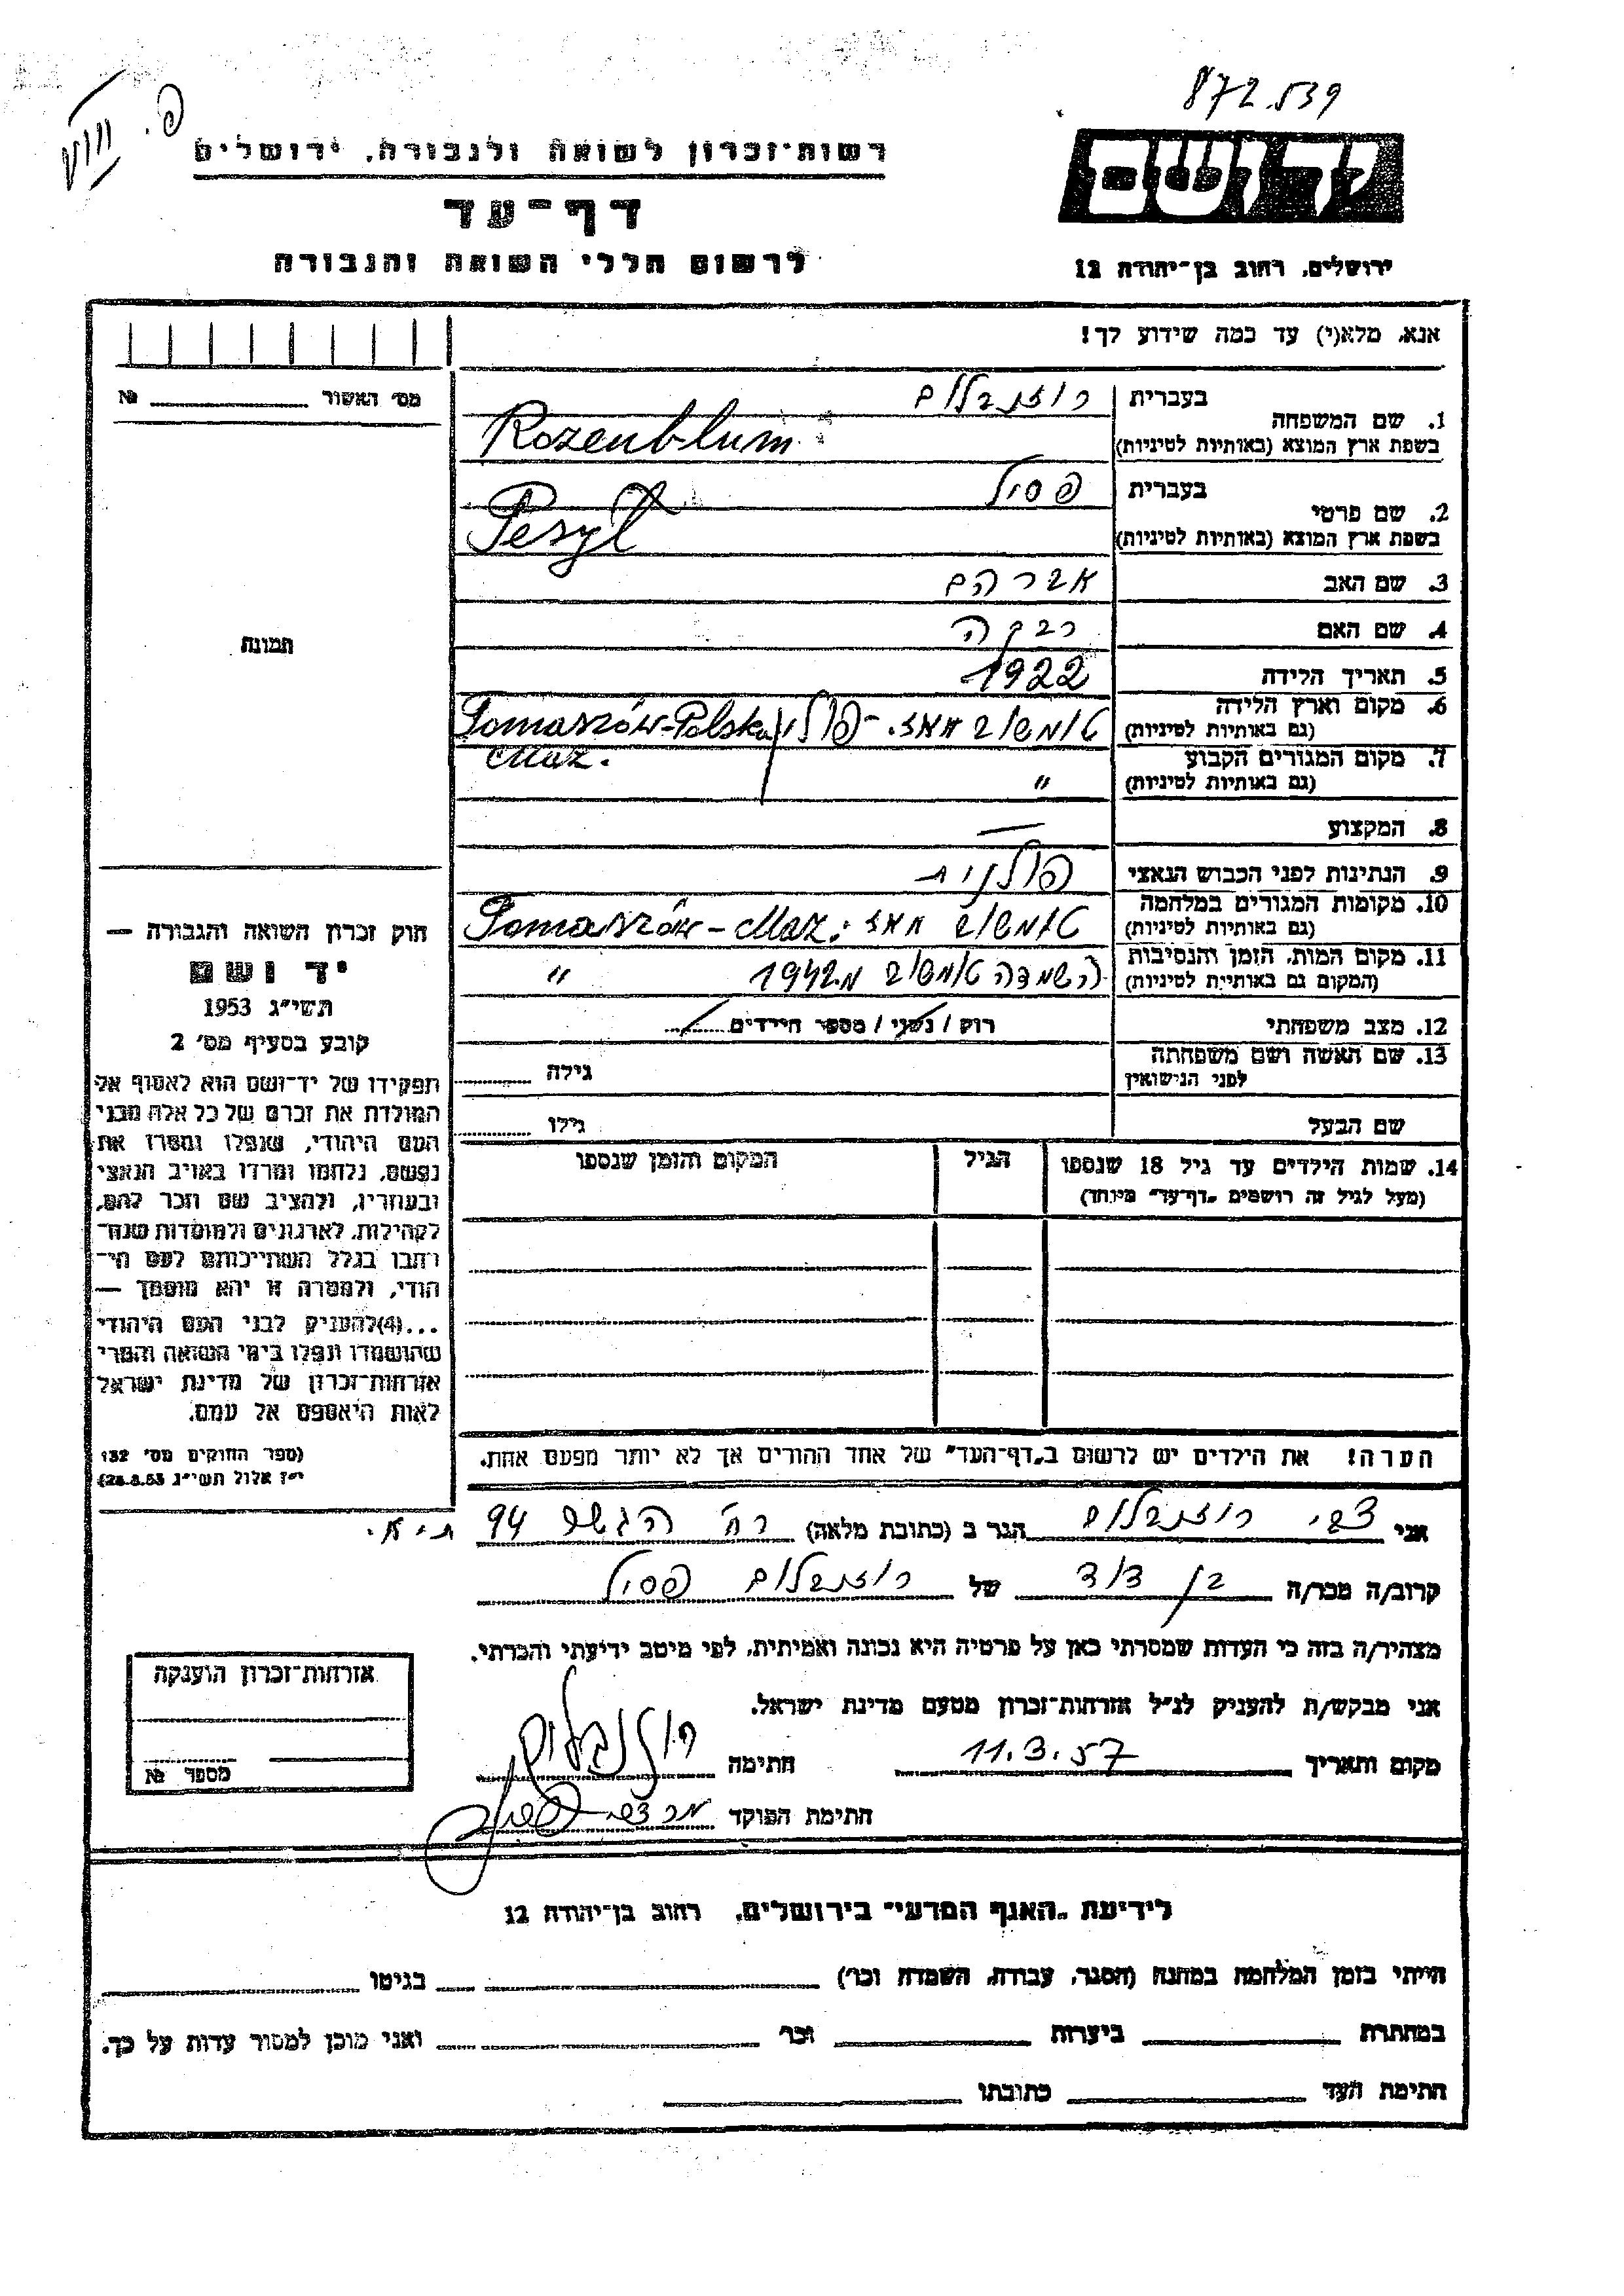 872.539
רשות־זכרון לשואה ולגבורה, ירושלים
דף־עד
לרשום חללי השואה והגבורה
יד ושם
ירושלים, רחוב בן־יהודה 12
אנא, מלא(י) עד כמה שידוע לך!
מס' האשור № 
תמונה
1. שם המשפחה
בעברית רוזנבלום
בשפת ארץ המוצא (באותיות לטיניות) Rozenblum
2. שם פרטי
בעברית פסיל
בשפת ארץ המוצא (באותיות לטיניות) Pesyl
3. שם האב אברהם
4. שם האם רבקה
5. תאריך הלידה 1922
6. מקום וארץ הלידה טומשוב מאז.-פולין Tomaszów-Polska
(גם באותיות לטיניות) Maz.
7. מקום המגורים הקבוע
(גם באותיות לטיניות) "
8. המקצוע —
9. הנתינות לפני הכבוש הנאצי פולנית
10. מקומות המגורים במלחמה טומשוב מאז. Tomaszów-Maz.
(גם באותיות לטיניות)
11. מקום המות, הזמן והנסיבות השמדה טומשוב 1942 "
(המקום גם באותיות לטיניות)
12. מצב משפחתי רוק / נשוי / מספר הילדים
13. שם האשה ושם משפחתה
לפני הנישואין גילה
שם הבעל גילו
14. שמות הילדים עד גיל 18 שנספו הגיל המקום והזמן שנספו
(מעל לגיל זה רושמים "דף־עד" מיוחד)
הערה! את הילדים יש לרשום ב"דף־העד" של אחד ההורים אך לא יותר מפעם אחת.
חוק זכרון השואה והגבורה —
יד ושם
תשי"ג 1953
קובע בסעיף מס' 2
תפקידו של יד־ושם הוא לאסוף אל
המולדת את זכרם של כל אלה מבני
העם היהודי, שנפלו ומסרו את
נפשם, נלחמו ומרדו באויב הנאצי
ובעוזריו, ולהציב שם וזכר להם,
לקהילות, לארגונים ולמוסדות שנח־
רבו בגלל השתייכותם לעם הי־
הודי, ולמטרה זו יהא מוסמך —
...(4) להעניק לבני העם היהודי
שהושמדו ונפלו בימי השואה והמרי
אזרחות־זכרון של מדינת ישראל
לאות היאספם אל עמם.
(ספר החוקים מס' 132
י"ז אלול תשי"ג 28.8.53)
אני צבי רוזנבלום הגר ב (כתובת מלאה) רח' 94 ת"א.
קרוב/ה מכר/ה בן דוד של רוזנבלום פסיל
מצהיר/ה בזה כי העדות שמסרתי כאן על פרטיה היא נכונה ואמיתית, לפי מיטב ידיעתי והכרתי.
אני מבקש/ת להעניק לנ"ל אזרחות־זכרון מטעם מדינת ישראל.
מקום ותאריך 11.3.57 חתימה רוזנבלום
חתימת הפוקד
אזרחות־זכרון הוענקה
מספר №
לידיעת "האגף המדעי" בירושלים, רחוב בן־יהודה 12
הייתי בזמן המלחמה במחנה (הסגר, עבודה, השמדה וכו') בגיטו
במחתרת ביערות וכו' ואני מוכן למסור עדות על כך.
חתימת העד כתובתו